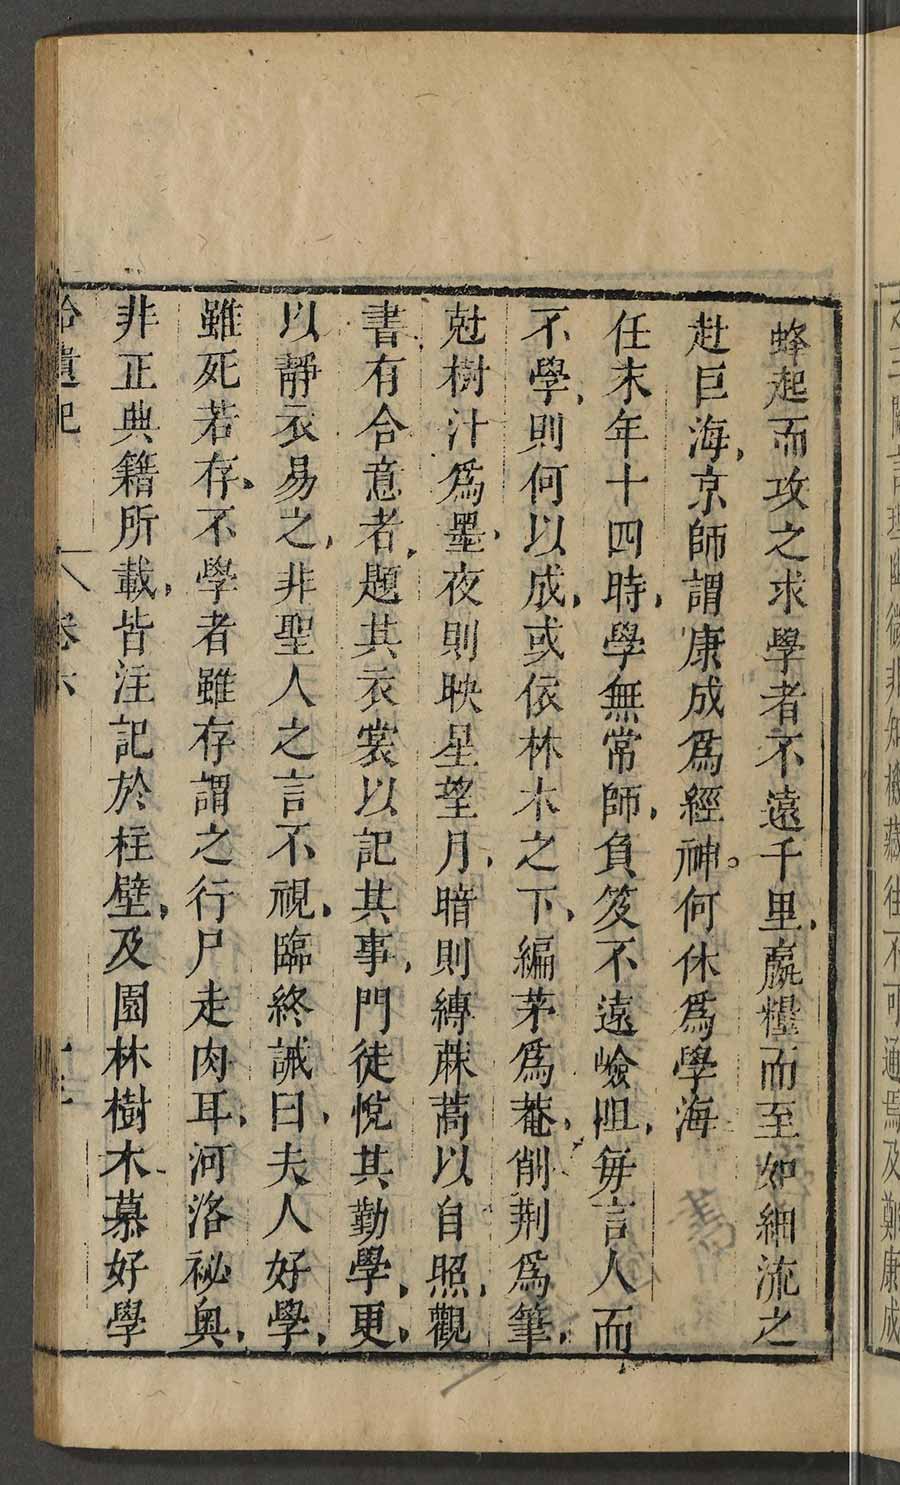 蜂起而攻之求學者不遠千里嬴糧而至如細流之
赴巨海京師謂康成爲經神何休爲學海
任末年十四時學無常師負笈不遠嶮阻每言人而
不學則何以成或依林木之下編茅爲菴削荆爲筆
尅樹汁爲墨夜則映星望月暗則縛蔴蒿以自照觀
書有合意者題其衣裳以記其事門徒悅其勤學更
以靜衣易之非聖人之言不視臨終誡曰夫人好學
雖死若存不學者雖存謂之行尸走肉耳河洛祕奥
非正典籍所載皆注記於柱壁及園林樹木慕好學
拾遺記 卷六